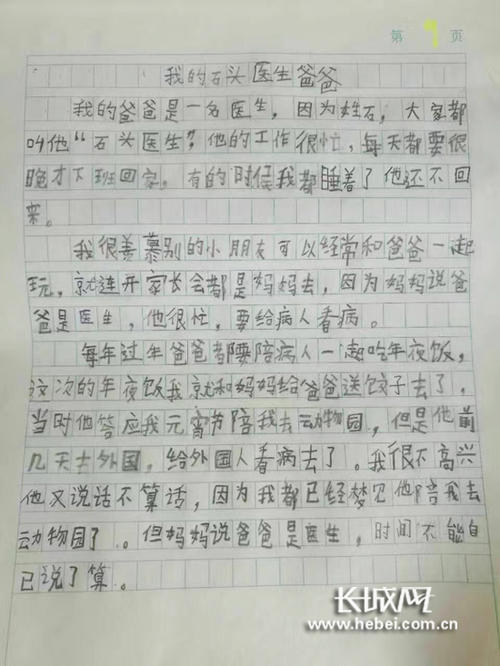 第 9 页
我的石头医生爸爸
我的爸爸是一名医生，因为姓石，大家都
叫他“石头医生”他的工作很忙，每天都要很
晚才下班回家。有的时候我都睡着了他还不回
来。
我很羡慕别的小朋友可以经常和爸爸一起
玩，就连开家长会都是妈妈去，因为妈妈说爸
爸是医生，他很忙，要给病人看病。
每年过年爸爸都要陪病人一起吃年夜饭，
这次的年夜饭我就和妈妈给爸爸送饺子去了。
当时他答应我元宵节陪我去动物园，但是他前
几天去外国，给外国人看病去了。我很不高兴
他又说话不算话，因为我都已经梦见他陪我去
动物园了。。但妈妈说爸爸是医生，时间不能自
己说了算。
长城网
www.hebei.com.cn